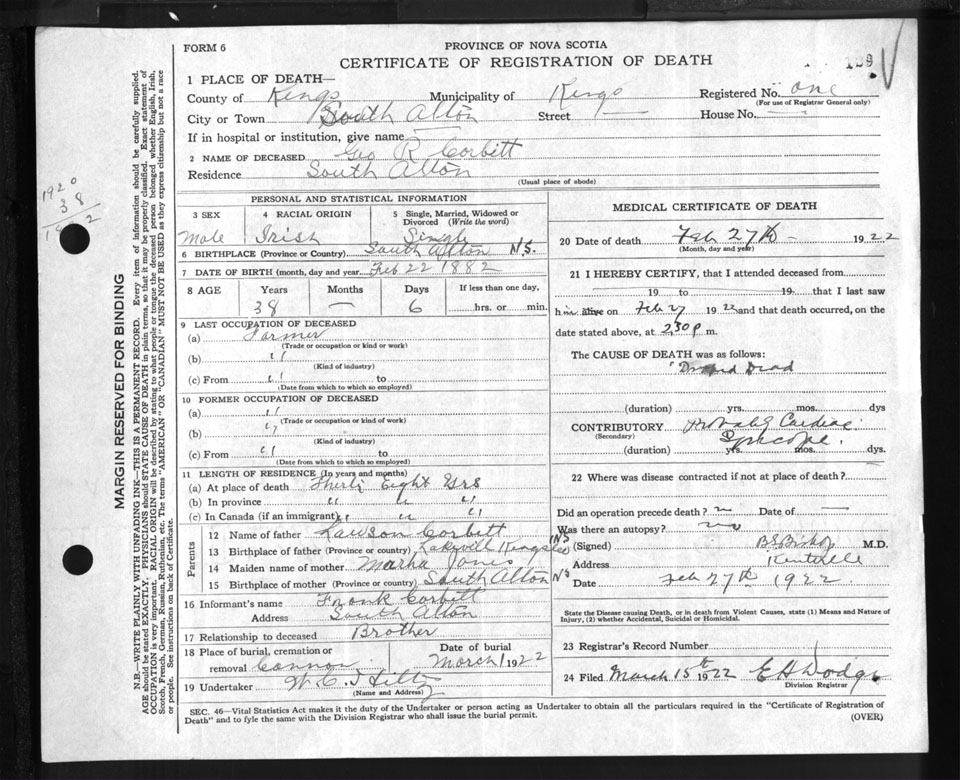 FORM 6
PROVINCE OF NOVA SCOTIA
CERTIFICATE OF REGISTRATION OF DEATH
1 PLACE OF DEATH—
County of Kings Municipality of Kings Registered No. one
(For use of Registrar General only)
City or Town South Alton Street — House No. —
If in hospital or institution, give name —
2 NAME OF DECEASED Geo R Corbitt
Residence South Alton
(Usual place of abode)
PERSONAL AND STATISTICAL INFORMATION
3 SEX 4 RACIAL ORIGIN 5 Single, Married, Widowed or Divorced (Write the word)
Male Irish Single
6 BIRTHPLACE (Province or Country) South Alton N.S.
7 DATE OF BIRTH (month, day and year) Feb 22 1882
8 AGE Years Months Days If less than one day,
38 — 6 hrs. or min.
9 LAST OCCUPATION OF DECEASED
(a) Farmer
(Trade or occupation or kind or work)
(b) "
(Kind of industry)
(c) From " to
(Date from which to which so employed)
10 FORMER OCCUPATION OF DECEASED
(a) "
(Trade or occupation or kind of work)
(b) "
(Kind of industry)
(c) From " to
(Date from which to which so employed)
11 LENGTH OF RESIDENCE (In years and months)
(a) At place of death Thirty Eight Yrs
(b) In province " " "
(c) In Canada (if an immigrant) " " "
Parents
12 Name of father Lawson Corbitt
13 Birthplace of father (Province or country) Lakeville Kings Co N S
14 Maiden name of mother Jones
15 Birthplace of mother (Province or country) South Alton N S
16 Informant's name Frank Corbitt
Address South Alton
17 Relationship to deceased Brother
18 Place of burial, cremation or removal Date of burial
March 1 1922
19 Undertaker
(Name and Address)
MEDICAL CERTIFICATE OF DEATH
20 Date of death Feb 27th — 1922
(Month, day and year)
21 I HEREBY CERTIFY, that I attended deceased from
19 to 19 that I last saw
him alive on Feb 27 1922 and that death occurred, on the
date stated above, at 230 p m.
The CAUSE OF DEATH was as follows:
Dropped Dead
(duration) yrs. mos. dys
CONTRIBUTORY Probably Cardiac
(Secondary) Syncope.
(duration) yrs. mos. dys.
22 Where was disease contracted if not at place of death?
Did an operation precede death? Date of —
Was there an autopsy? no
(Signed) B.S. Bishop M.D.
Address Kentville
Date Feb 27th 1922
State the Disease causing Death, or in death from Violent Causes, state (1) Means and Nature of Injury, (2) whether Accidental, Suicidal or Homicidal.
23 Registrar's Record Number
24 Filed March 15th 1922 E H Dodge
Division Registrar
SEC. 46—Vital Statistics Act makes it the duty of the Undertaker or person acting as Undertaker to obtain all the particulars required in the "Certificate of Registration of
Death" and to fyle the same with the Division Registrar who shall issue the burial permit.
(OVER)
MARGIN RESERVED FOR BINDING
N.B.—WRITE PLAINLY WITH UNFADING INK—THIS IS A PERMANENT RECORD. Every item of information should be carefully supplied.
AGE should be stated EXACTLY. PHYSICIANS should STATE CAUSE OF DEATH in plain terms, so that it may be properly classified. Exact statement of
OCCUPATION is very important. RACIAL ORIGIN will be described by stating to what people or tongue the deceased person belonged whether English, Irish,
Scotch, French, German, Russian, Ruthenian, etc. The terms "AMERICAN" OR "CANADIAN" MUST NOT BE USED as they express citizenship but not a race
or people. See instructions on back of Certificate.
1920
38